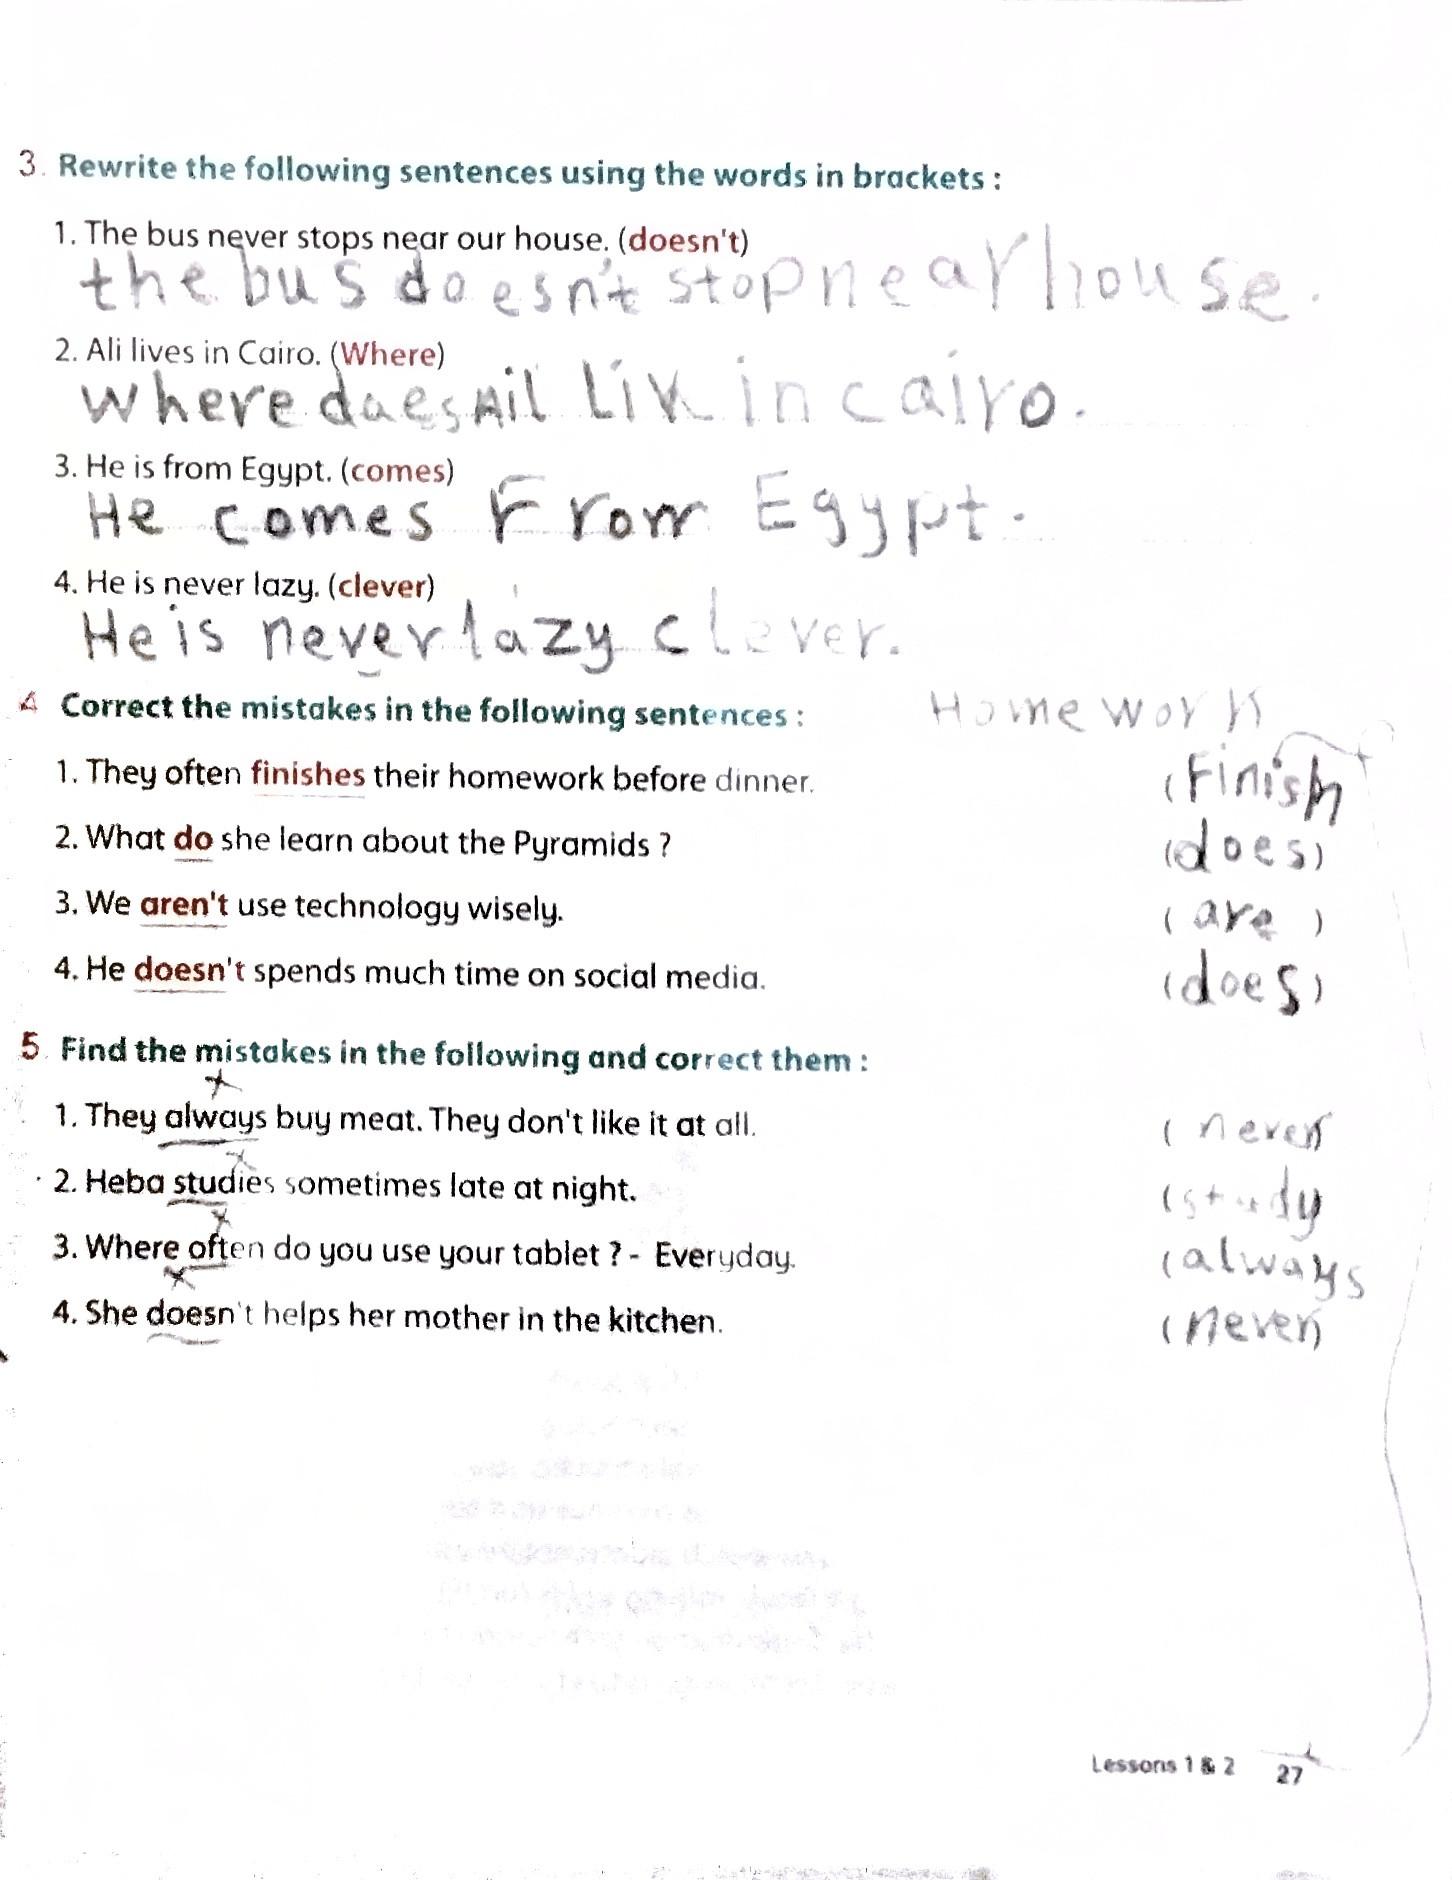 3. Rewrite the following sentences using the words in brackets :
1. The bus never stops near our house. (doesn't)
the bus doesn't stop near house.
2. Ali lives in Cairo. (Where)
where daes Ail Liv in cairo.
3. He is from Egypt. (comes)
He comes From Egypt.
4. He is never lazy. (clever)
He is never lazy clever.
4 Correct the mistakes in the following sentences :
Home work
1. They often finishes their homework before dinner. (Finish
2. What do she learn about the Pyramids ? (does)
3. We aren't use technology wisely. (are)
4. He doesn't spends much time on social media. (does)
5. Find the mistakes in the following and correct them :
1. They always buy meat. They don't like it at all. (never
2. Heba studies sometimes late at night. (study
3. Where often do you use your tablet ? - Everyday. (always
4. She doesn't helps her mother in the kitchen. (never
Lessons 1 & 2 27